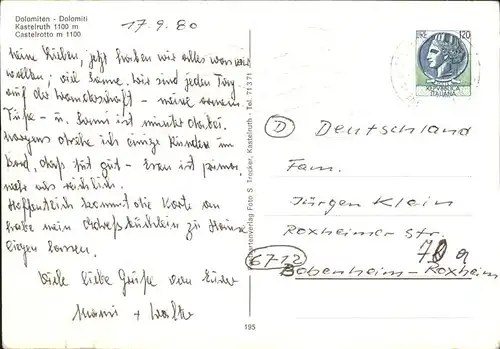 Dolomiten - Dolomiti
Kastelruth 1100 m
Castelrotto m 1100
17.9.80
Meine Lieben, jetzt haben wir alles was wir
wollten; viel Sonne. Wir sind jeden Tag
auf der Wanderschaft - meine armen
Füße - u. Bummi ist munter dabei.
Morgens drehe ich einige Runden im
Bad, das tut gut - Essen ist prima,
mehr als reichlich.
Hoffentlich kommt die Karte an
habe mein Adreßbüchlein zu Hause
liegen lassen.
Viele liebe Grüße von Eurer
Mami + Walter
Kartenverlag Foto S. Trocker, Kastelruth - Tel. 71371
195
LIRE 120
REPVBBLICA
ITALIANA
D Deutschland
Fam.
Jürgen Klein
Roxheimer Str.
70 a
6712
Bobenheim-Roxheim